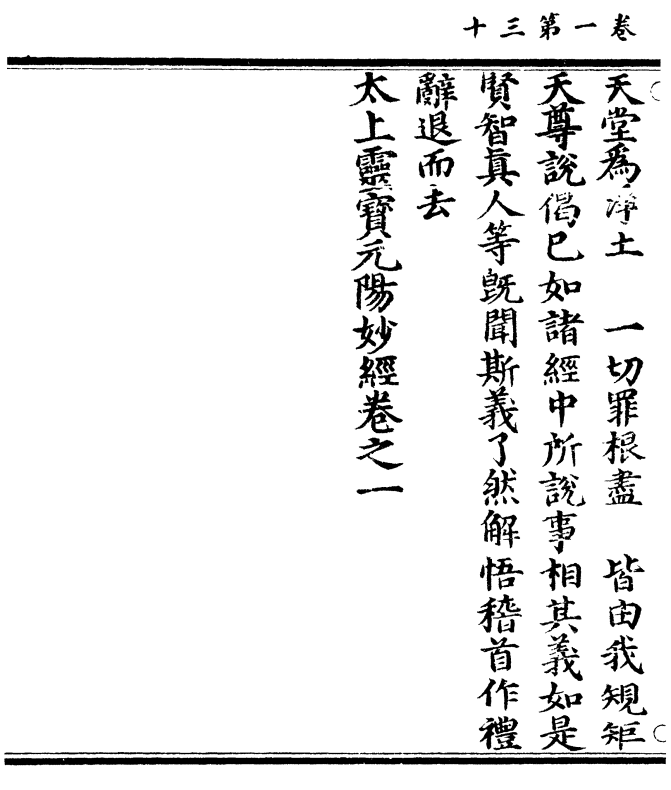 卷一第三十
天堂為淨土　一切罪根盡　皆由我規矩
天尊說偈已如諸經中所說事相其義如是
賢智真人等既聞斯義了然解悟稽首作禮
辭退而去
太上靈寶元陽妙經卷之一